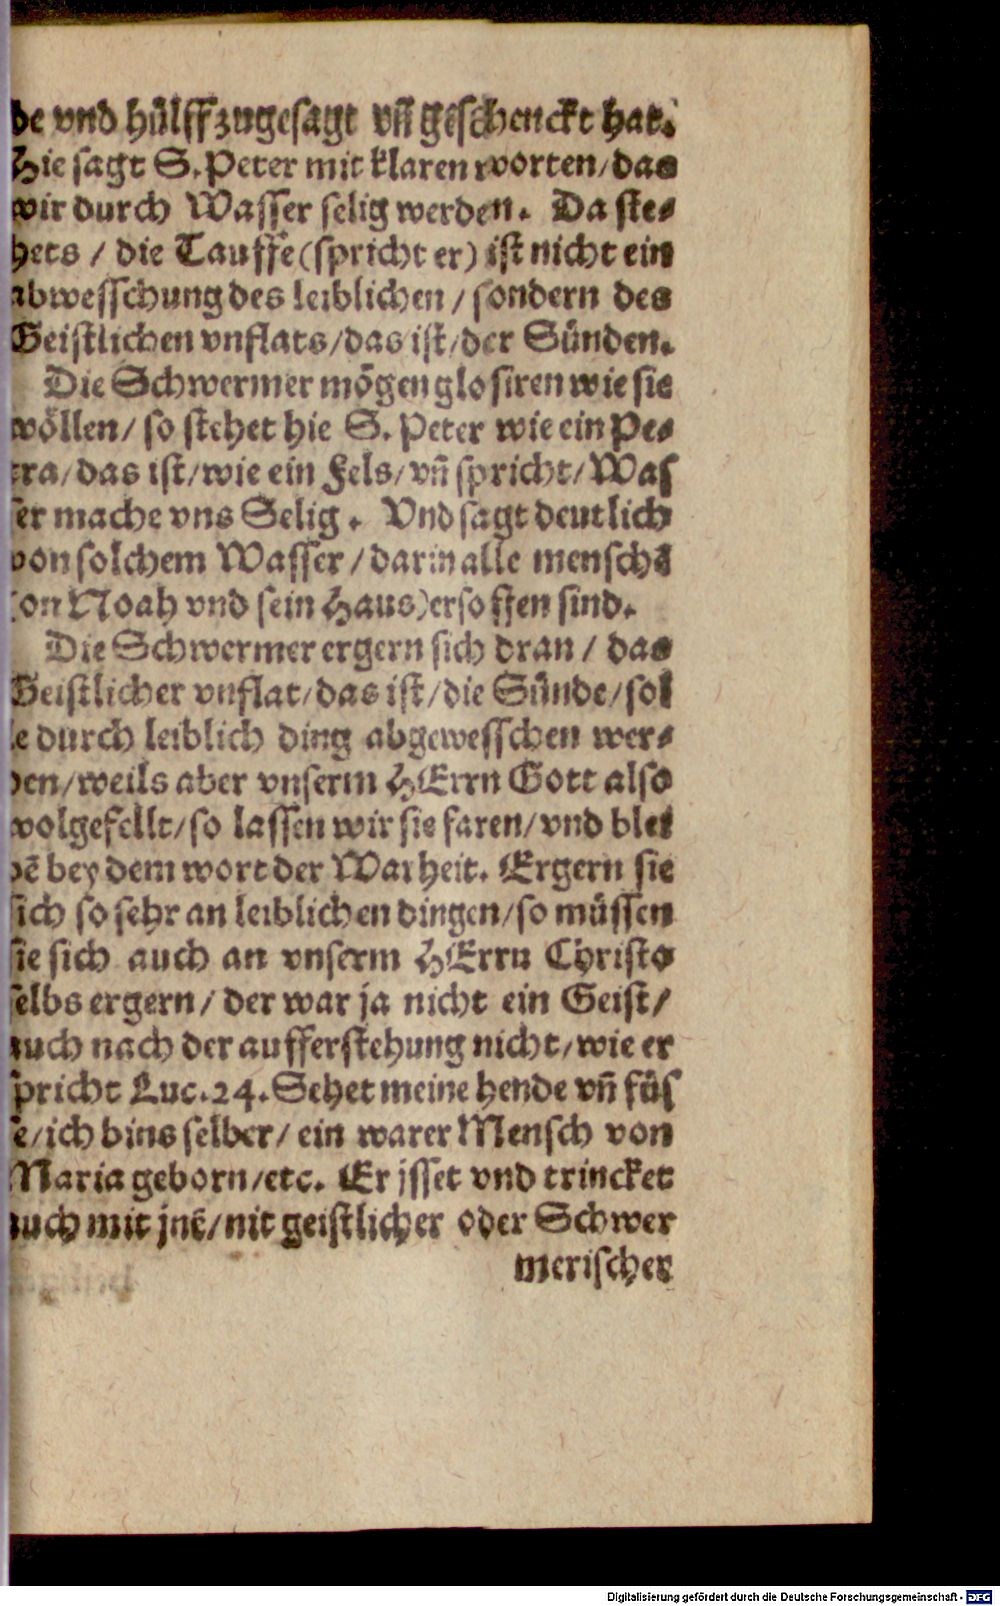 de vnd hülff zugesagt vñ geschenckt hat.
Hie sagt S. Peter mit klaren worten/ das
wir durch Wasser selig werden. Da ste-
hets / die Tauffe (spricht er) ist nicht ein
abwesschung des leiblichen / sondern des
Geistlichen vnflats/ das ist/ der Sünden.
Die Schwermer mögen glosiren wie sie
wöllen/ so stehet hie S. Peter wie ein Pe-
tra/ das ist/ wie ein Fels/ vñ spricht/ Was
ser mache vns Selig. Vnd sagt deutlich
von solchem Wasser / darin alle menschē
(on Noah vnd sein Haus) ersoffen sind.
Die Schwermer ergern sich dran / das
Geistlicher vnflat/ das ist/ die Sünde/ sol
le durch leiblich ding abgewesschen wer-
den/ weils aber vnserm HErrn Gott also
wolgefellt/ so lassen wir sie faren/ vnd blei
bē bey dem wort der Warheit. Ergern sie
sich so sehr an leiblichen dingen/ so müssen
sie sich auch an vnserm HErrn Christo
selbs ergern/ der war ja nicht ein Geist/
auch nach der aufferstehung nicht/ wie er
spricht Luc. 24. Sehet meine hende vñ füs
se/ ich bins selber/ ein warer Mensch von
Maria geborn/ etc. Er jsset vnd trincket
auch mit jnē/ nit geistlicher oder Schwer
merischer
Digitalisierung gefördert durch die Deutsche Forschungsgemeinschaft - DFG